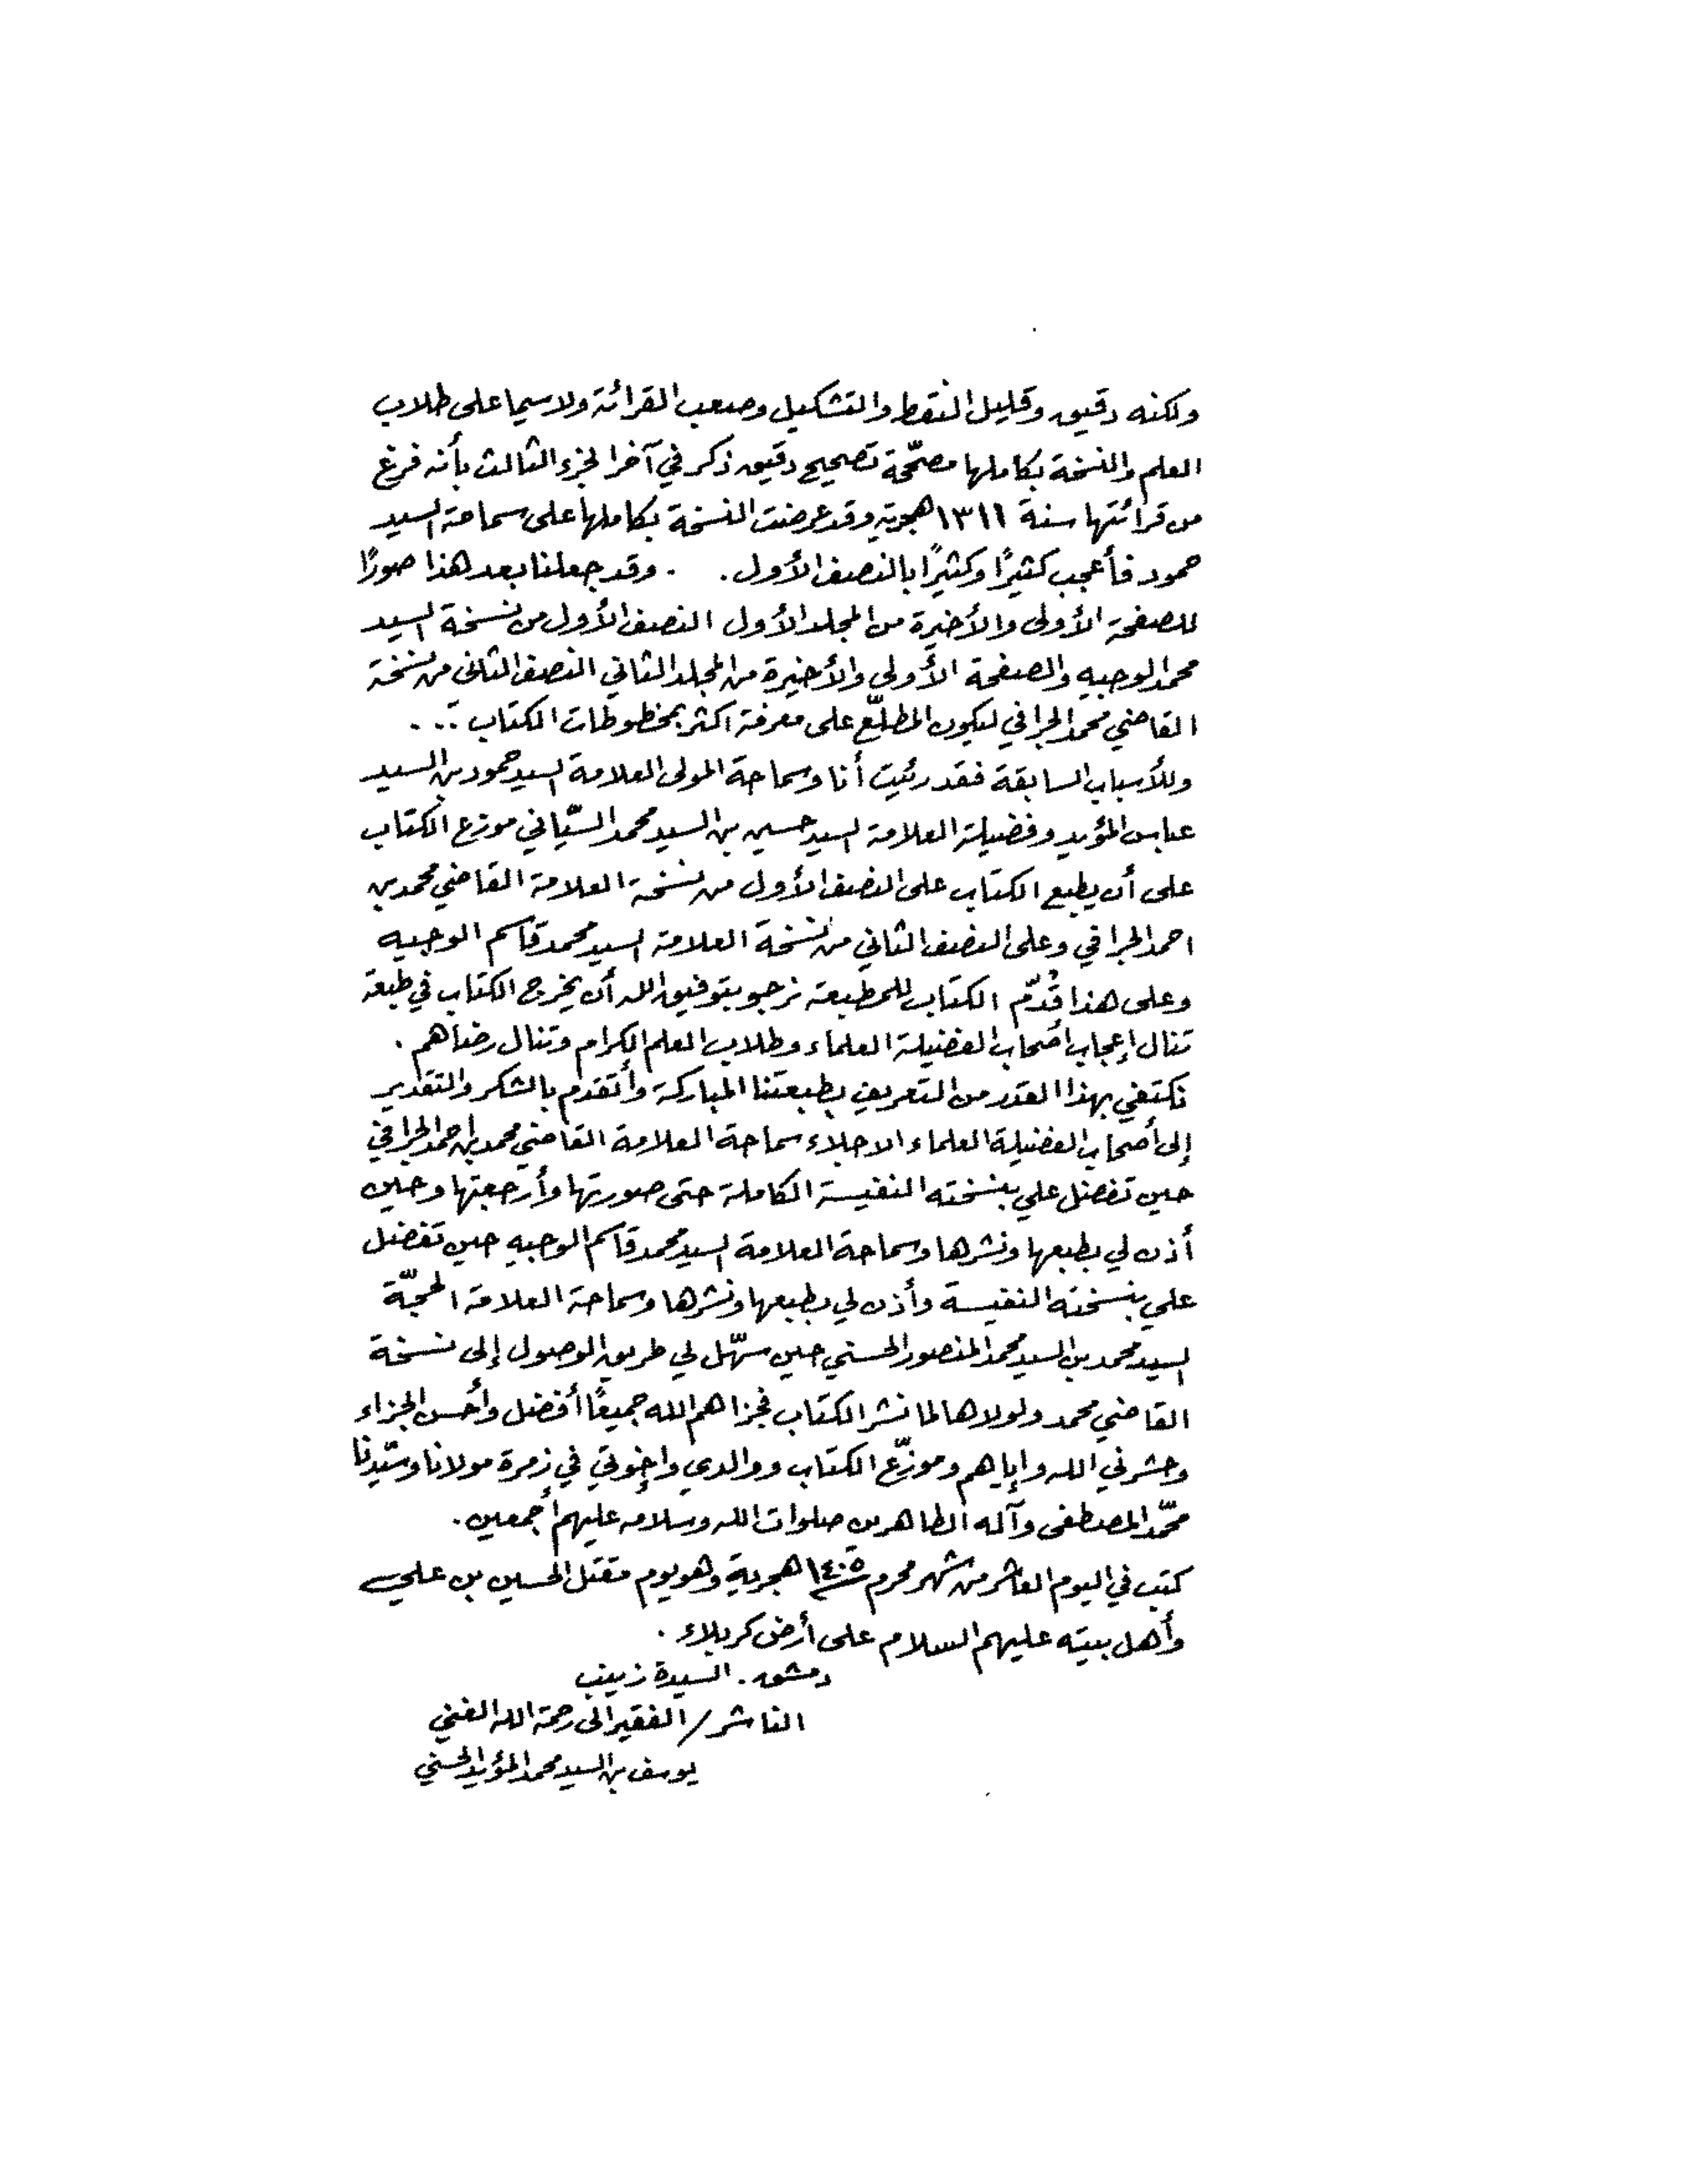 ولكنه دقيق وقليل النقط والتشكيل وصعب القرائة ولاسيما على طلاب
العلم والنسخة بكاملها مصحّحة تصحيح دقيق ذكر في آخر الجزء الثالث بأنه فرغ
من قرائتها سنة ١٣١١ هجرية وقد عرضت النسخة بكاملها على سماحة السيد
حمود فأعجب كثيرًا وكثيرًا بالنصف الأول . . وقد جعلنا بعد هذا صورًا
للصفحة الأولى والأخيرة من المجلد الأول النصف الأول من نسخة السيد
محمد الوجيه والصفحة الأولى والأخيرة من المجلد الثاني النصف الثاني من نسخة
القاضي محمد الجرافي ليكون المطلّع على معرفة اكثر بمخطوطات الكتاب ...
وللأسباب السابقة فقد رئيت أنا وسماحة المولى العلامة السيد حمود بن السيد
عباس المؤيد وفضيلة العلامة السيد حسين بن السيد محمد السّياني موزع الكتاب
على أن يطبع الكتاب على النصف الأول من نسخة العلامة القاضي محمد بن
احمد الجرافي وعلى النصف الثاني من نسخة العلامة السيد محمد قاسم الوجيه
وعلى هذا قُدّم الكتاب للمطبعة نرجو بتوفيق الله أن يخرج الكتاب في طبعة
تنال إعجاب أصحاب الفضيلة العلماء وطلاب العلم الكرام وتنال رضاهم .
نكتفي بهذا القدر من التعريف بطبعتنا المباركة وأتقدم بالشكر والتقدير
إلى أصحاب الفضيلة العلماء الاجلاء سماحة العلامة القاضي محمد بن احمد الجرافي
حين تفضل علي بنسخته النفيسة الكاملة حتى صورتها وأرجعتها وحين
أذن لي بطبعها ونشرها وسماحة العلامة السيد محمد قاسم الوجيه حين تفضل
علي بنسخته النفيسة وأذن لي بطبعها ونشرها وسماحة العلامة الحجّة
السيد محمد بن السيد محمد المنصور الحسني حين سهّل لي طريق الوصول إلى نسخة
القاضي محمد ولولاها لما نشر الكتاب فجزاهم الله جميعًا أفضل وأحسن الجزاء
وحشرني الله وإياهم وموزّع الكتاب ووالدي وإخوتي في زمرة مولانا وسيّدنا
محمّد المصطفى وآله الطاهرين صلوات الله وسلامه عليهم أجمعين .
كتب في اليوم العاشر من شهر محرم ١٤٠٥ هجرية وهو يوم مقتل الحسين بن علي
وأهل بيته عليهم السلام على أرض كربلاء .
دمشق . السيدة زينب
الناشر / الفقير الى رحمة الله الغني
يوسف بن السيد محمد المؤيد الحسني